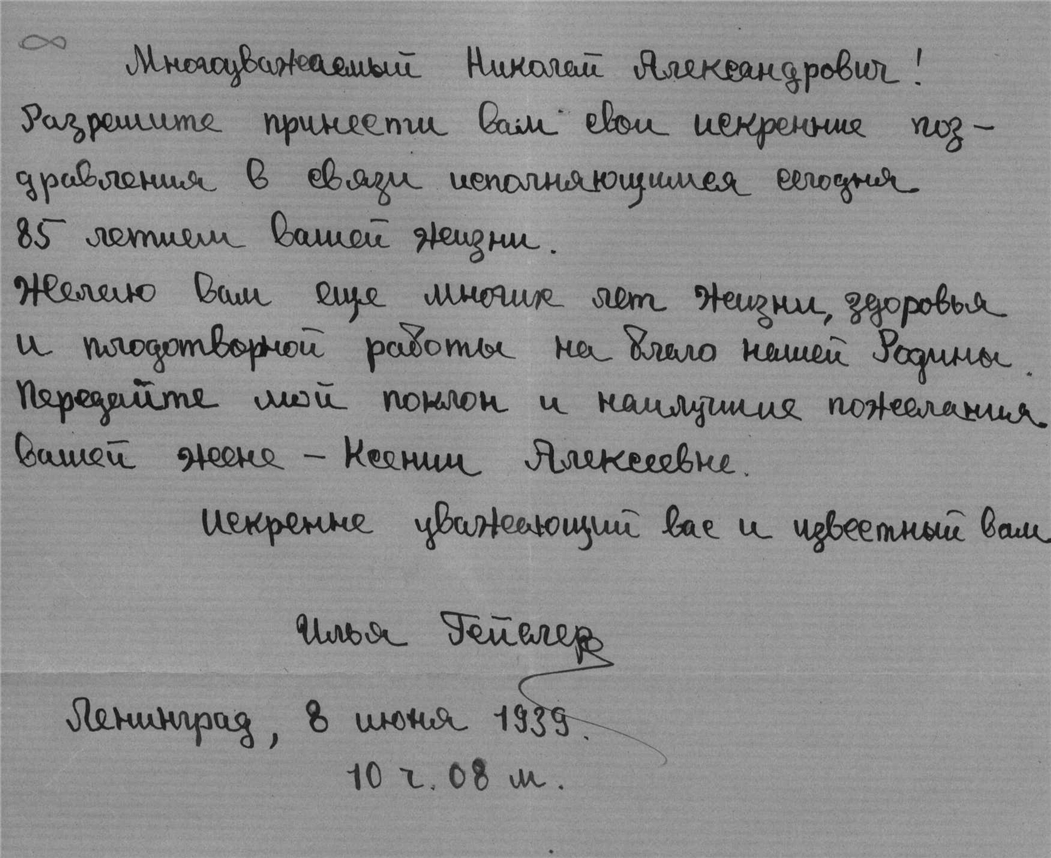 Многоуважаемый Николай Александрович!
Разрешите принести вам свои искренние поз-
дравления в связи исполняющимся сегодня
85 летием вашей жизни.
Желаю вам еще многих лет жизни, здоровья
и плодотворной работы на благо нашей Родины.
Передайте мой поклон и наилучшие пожелания
вашей жене – Ксении Алексеевне.
Искренне уважающий вас и известный вам
Илья
Ленинград, 8 июня 1939.
10 ч. 08 м.